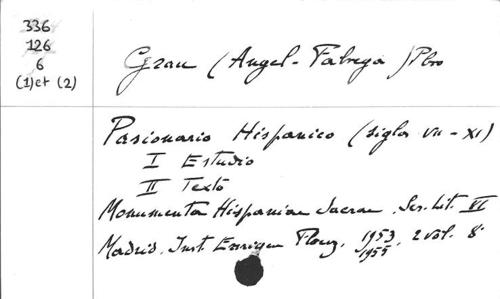 336
126
6
(1) et (2)
Grau (Angel-Fabrega) Pbro
Pasionario Hispanico (siglos VII - XI)
I Estudio
II Texto
Monumenta Hispaniae Sacrae. Ser. Lit. VI
Madrid. Inst. Enrique Florez. 1953 2 vol. 8°
1955